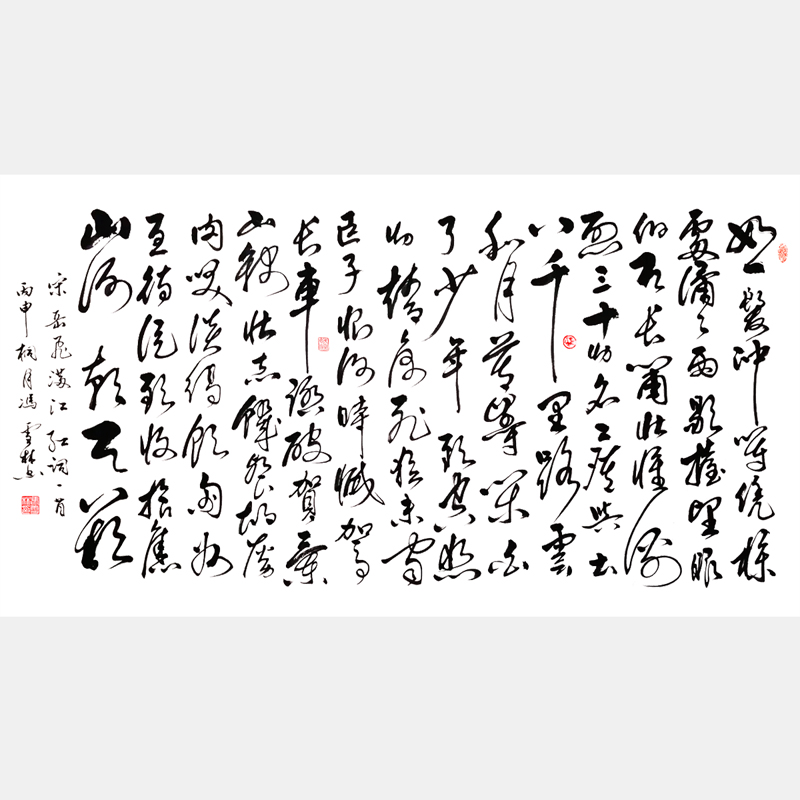 怒髮沖冠憑欄
處瀟々雨歇擡望眼
仰天長嘯壯懷激
烈三十功名塵與土
八千里路雲
和月莫等閑白
了少年頭空悲
切靖康恥猶未雪
臣子恨何時滅駕
長車踏破賀蘭
山缺壯志饑餐胡虜
肉笑談渴飲匈奴
血待從頭收拾舊
山河朝天闕
宋岳飛滿江紅詞一首
丙申桐月馮雪林書